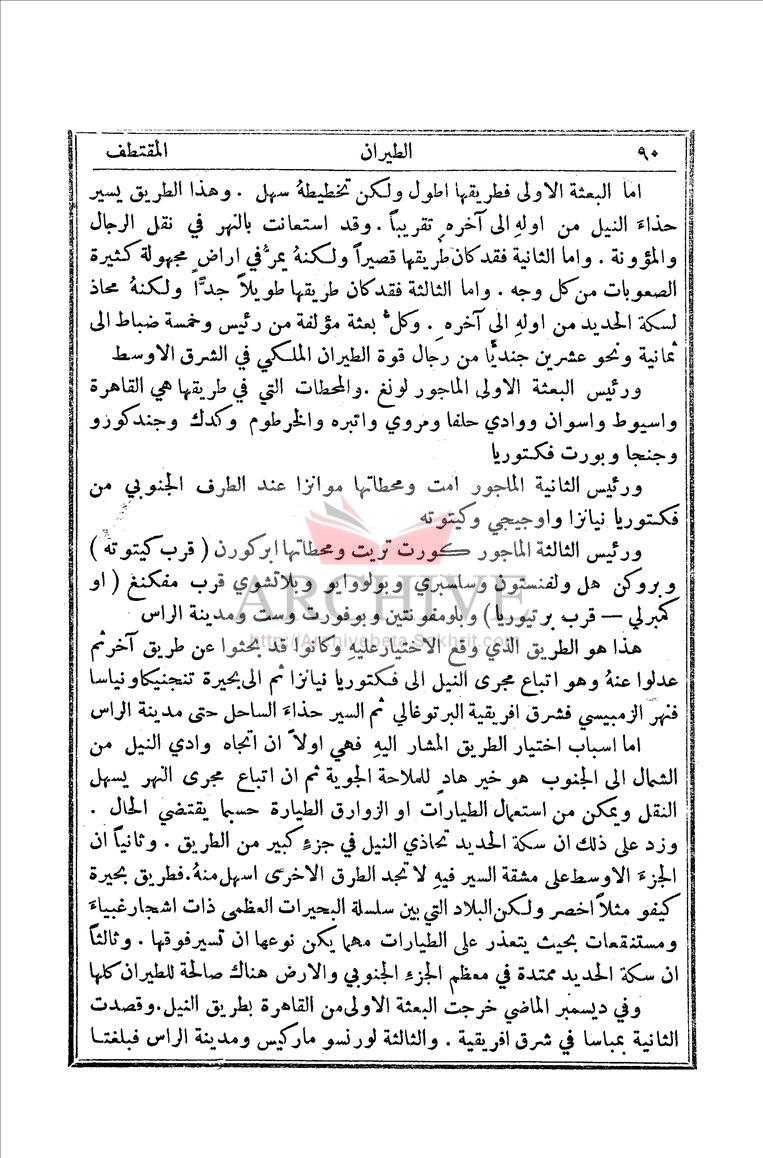 ٩٠ الطيران المقتطف
اما البعثة الاولى فطريقها اطول ولكن تخطيطهُ سهل . وهذا الطريق يسير
حذاءَ النيل من اولهِ الى آخره تقريباً . وقد استعانت بالنهر في نقل الرجال
والمؤونة . واما الثانية فقد كان طريقها قصيراً ولكنهُ يمرُّ في اراضٍ مجهولة كثيرة
الصعوبات من كل وجه . واما الثالثة فقد كان طريقها طويلاً جدًّا ولكنهُ محاذ
لسكة الحديد من اولهِ الى آخره . وكلُّ بعثة مؤلفة من رئيس وخمسة ضباط الى
ثمانية ونحو عشرين جنديًّا من رجال قوة الطيران الملكي في الشرق الاوسط
ورئيس البعثة الاولى الماجور لونغ . والمحطات التي في طريقها هي القاهرة
واسيوط واسوان ووادي حلفا ومروي واتبره والخرطوم وكدك وجندكورو
وجنجا وبورت فكتوريا
ورئيس الثانية الماجور امت ومحطاتها موانزا عند الطرف الجنوبي من
فكتوريا نيانزا واوجيجي وكيتوته
ورئيس الثالثة الماجور كورت تريت ومحطاتها ابركورن ( قرب كيتوته )
وبروكن هل ولفنستون وسلسبري وبولووايو وبلاتشوي قرب مفكنغ ( او
كمبرلي — قرب برتيوريا ) وبلومفونتين وبوفورت وست ومدينة الراس
ARCHIVE
http://Archivebeta.Sakhrit.com
هذا هو الطريق الذي وقع الاختيار عليهِ وكانوا قد بحثوا عن طريق آخر ثم
عدلوا عنهُ وهو اتباع مجرى النيل الى فكتوريا نيانزا ثم الى بحيرة تنجنيكا ونياسا
فنهر الزمبيسي فشرق افريقية البرتوغالي ثم السير حذاءَ الساحل حتى مدينة الراس
اما اسباب اختيار الطريق المشار اليهِ فهي اولاً ان اتجاه وادي النيل من
الشمال الى الجنوب هو خير هادٍ للملاحة الجوية ثم ان اتباع مجرى النهر يسهل
النقل ويمكن من استعمال الطيارات او الزوارق الطيارة حسبما يقتضي الحال .
وزد على ذلك ان سكة الحديد تحاذي النيل في جزءٍ كبير من الطريق . وثانياً ان
الجزءَ الاوسط على مشقة السير فيهِ لا تجد الطرق الاخرى اسهل منهُ. فطريق بحيرة
كيفو مثلاً اخصر ولكن البلاد التي بين سلسلة البحيرات العظمى ذات اشجار غبياءَ
ومستنقعات بحيث يتعذر على الطيارات مهما يكن نوعها ان تسير فوقها . وثالثاً
ان سكة الحديد ممتدة في معظم الجزءِ الجنوبي والارض هناك صالحة للطيران كلها
وفي ديسمبر الماضي خرجت البعثة الاولى من القاهرة بطريق النيل. وقصدت
الثانية بمباسا في شرق افريقية . والثالثة لورنسو ماركيس ومدينة الراس فبلغتا